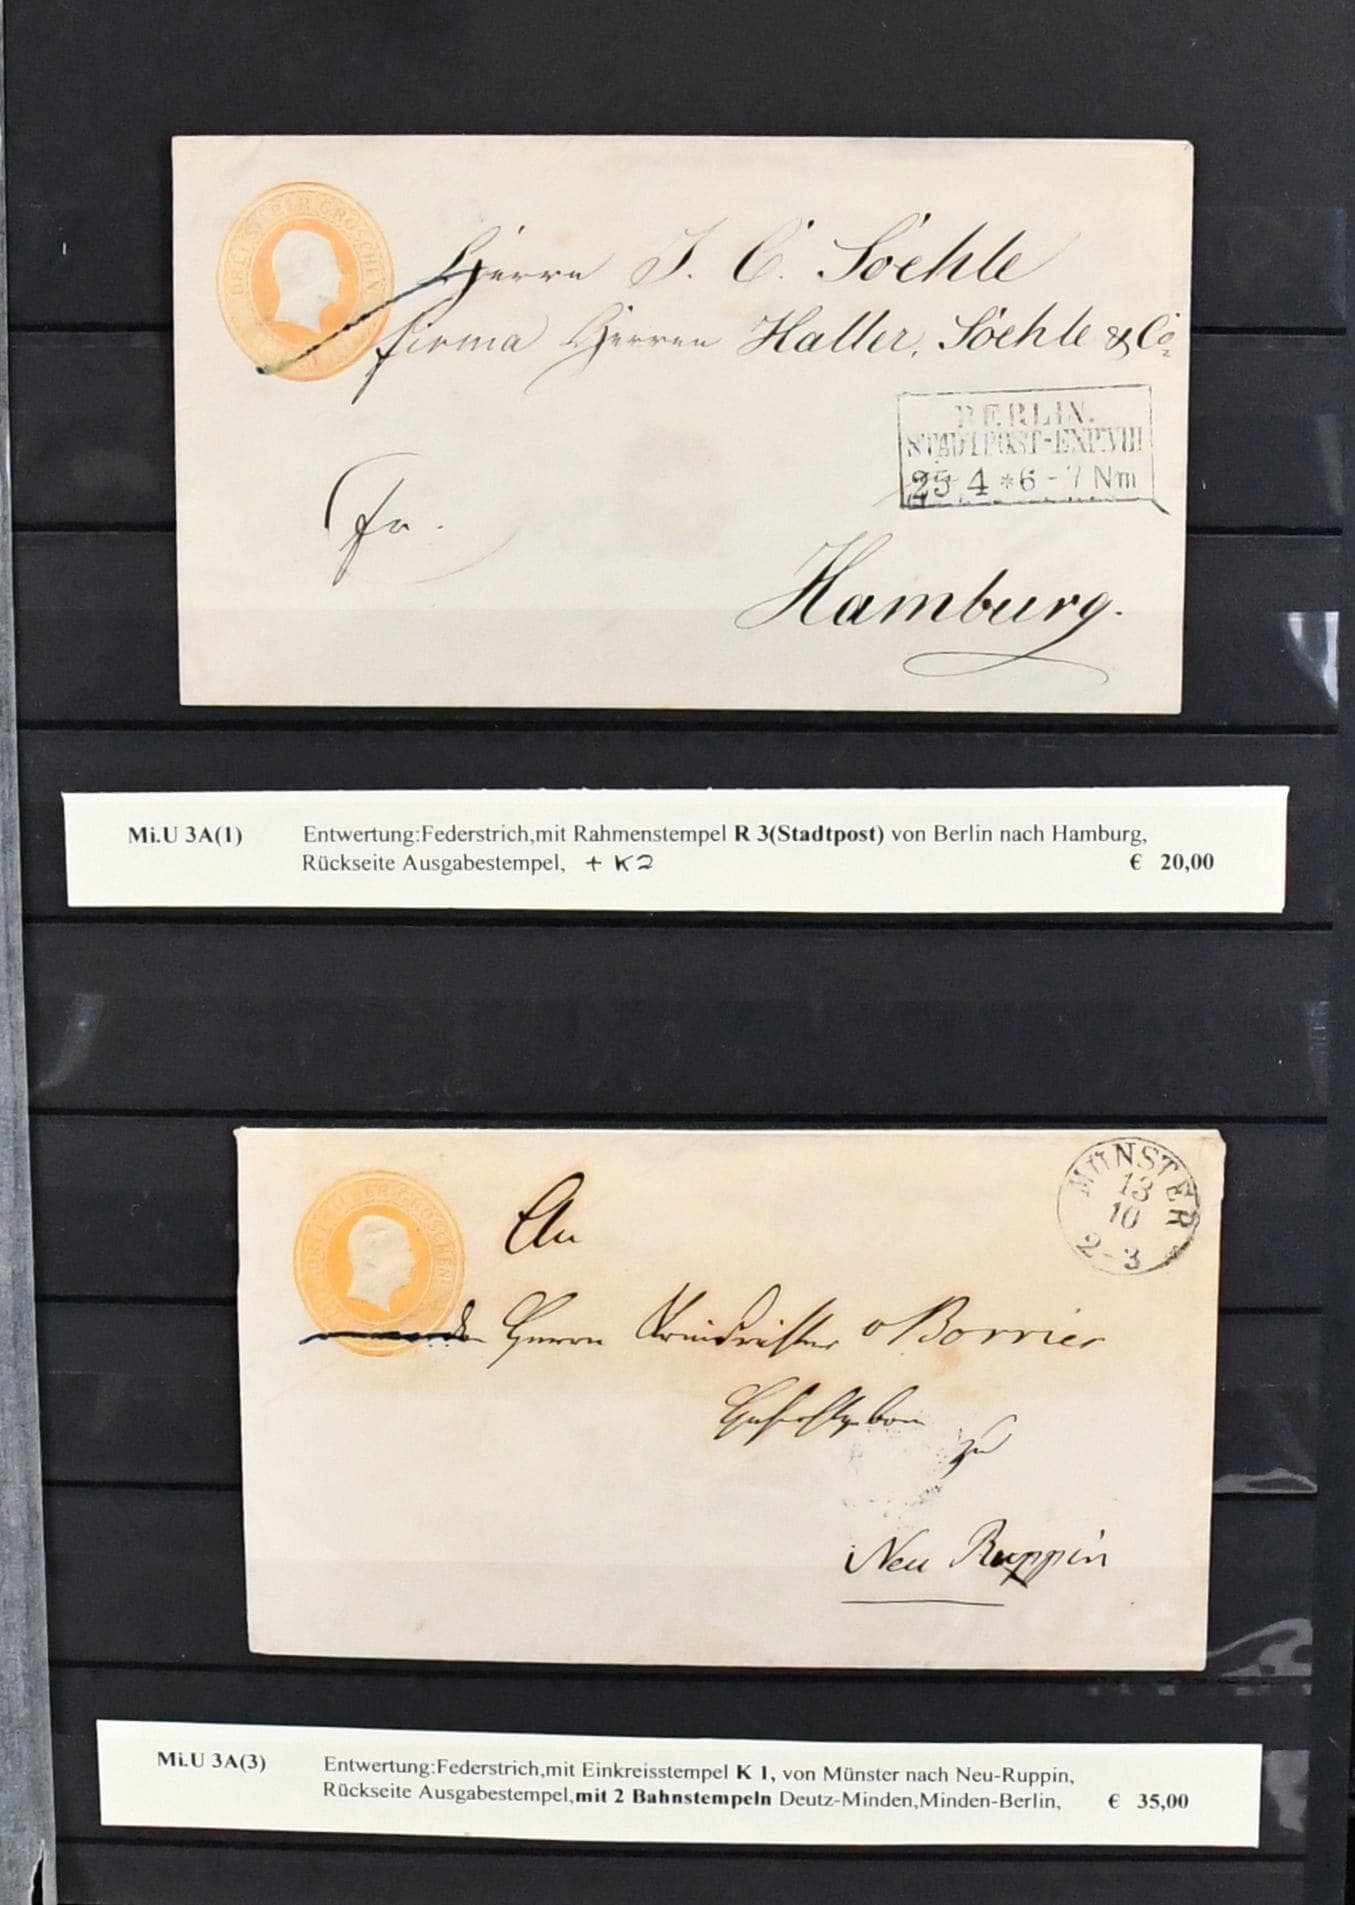 DREI SILBER GROSCHEN
Herrn J. C. Söehle
firma Herren Haller, Söehle & Co.
BERLIN.
STADTPOST-EXP.VIII
25 4 *6 - 7 Nm
fr.
Hamburg.
Mi.U 3A(1) Entwertung:Federstrich,mit Rahmenstempel R 3(Stadtpost) von Berlin nach Hamburg,
Rückseite Ausgabestempel, + K2 € 20,00
DREI SILBER GROSCHEN
MÜNSTER
13
10
2-3
An
den Herrn v Borries
zu
Neu Ruppin
Mi.U 3A(3) Entwertung:Federstrich,mit Einkreisstempel K 1, von Münster nach Neu-Ruppin,
Rückseite Ausgabestempel,mit 2 Bahnstempeln Deutz-Minden,Minden-Berlin, € 35,00